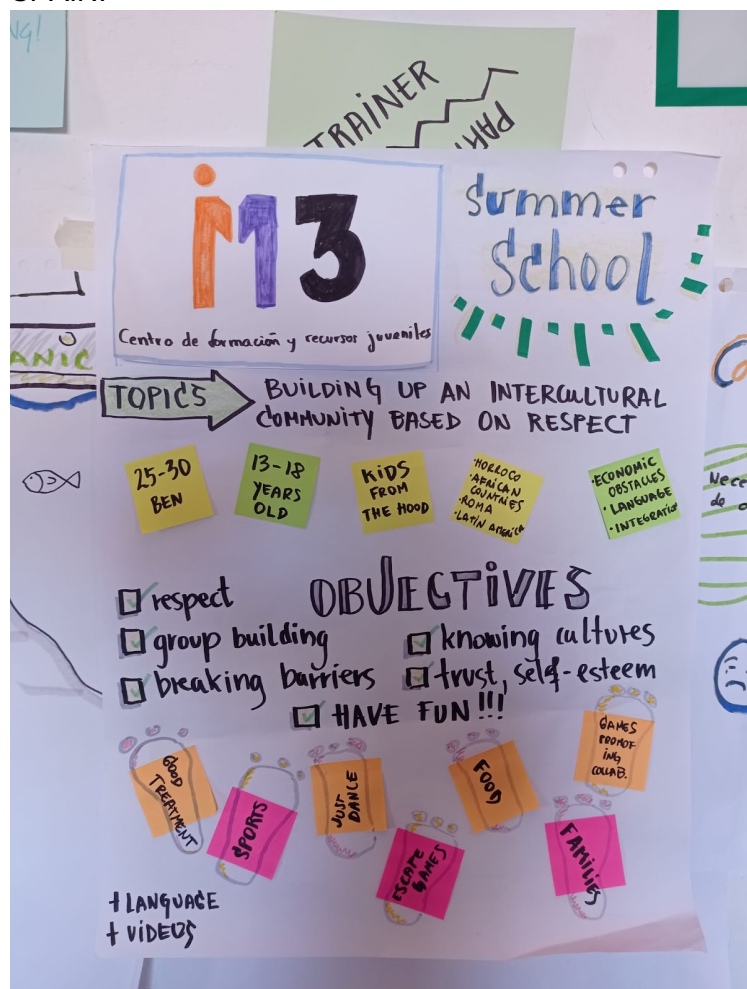 TRAINER
iM3
Centro de formación y recursos juveniles
Summer
School
TOPICS
BUILDING UP AN INTERCULTURAL
COMMUNITY BASED ON RESPECT
25-30
BEN
13-18
YEARS
OLD
KiDS
FROM
THE HOOD
·MORROCO
·AFRICAN
COUNTRIES
·ROMA
·LATIN AMERICA
·ECONOMIC
OBSTACLES
·LANGUAGE
·INTEGRATION
OBJECTIVES
respect
group building
knowing cultures
breaking barriers
trust, self-esteem
HAVE FUN!!!
GOOD
TREATMENT
SPORTS
JUST
DANCE
ESCAPE
GAMES
FOOD
FAMILIES
GAMES
PROMOT
ING
COLLAB.
+ LANGUAGE
+ VIDEOS